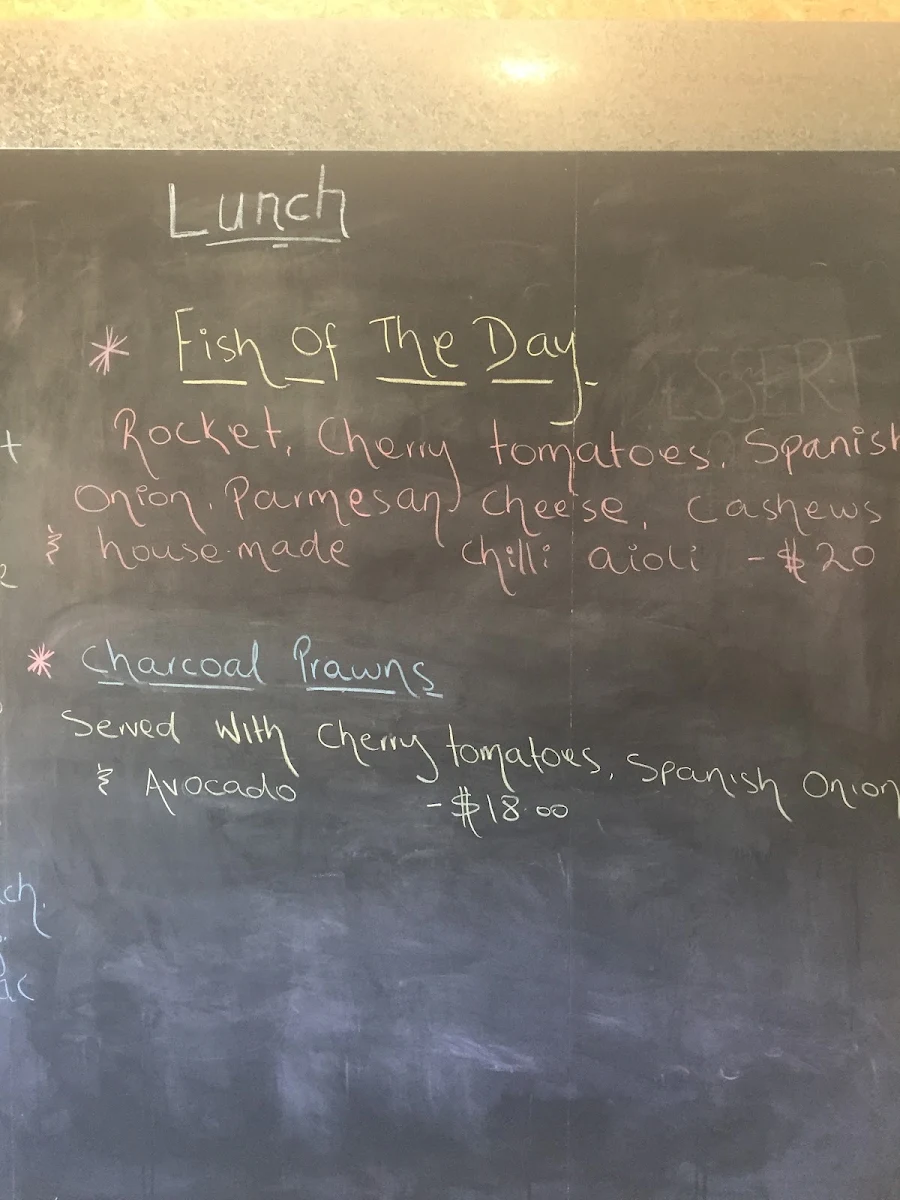 Lunch
* Fish Of The Day
Rocket, Cherry tomatoes, Spanish
Onion, Parmesan cheese, Cashews
& house-made chilli aioli - $20
* Charcoal Prawns
Served With Cherry tomatoes, Spanish Onion
& Avocado - $18.00
DESSERT